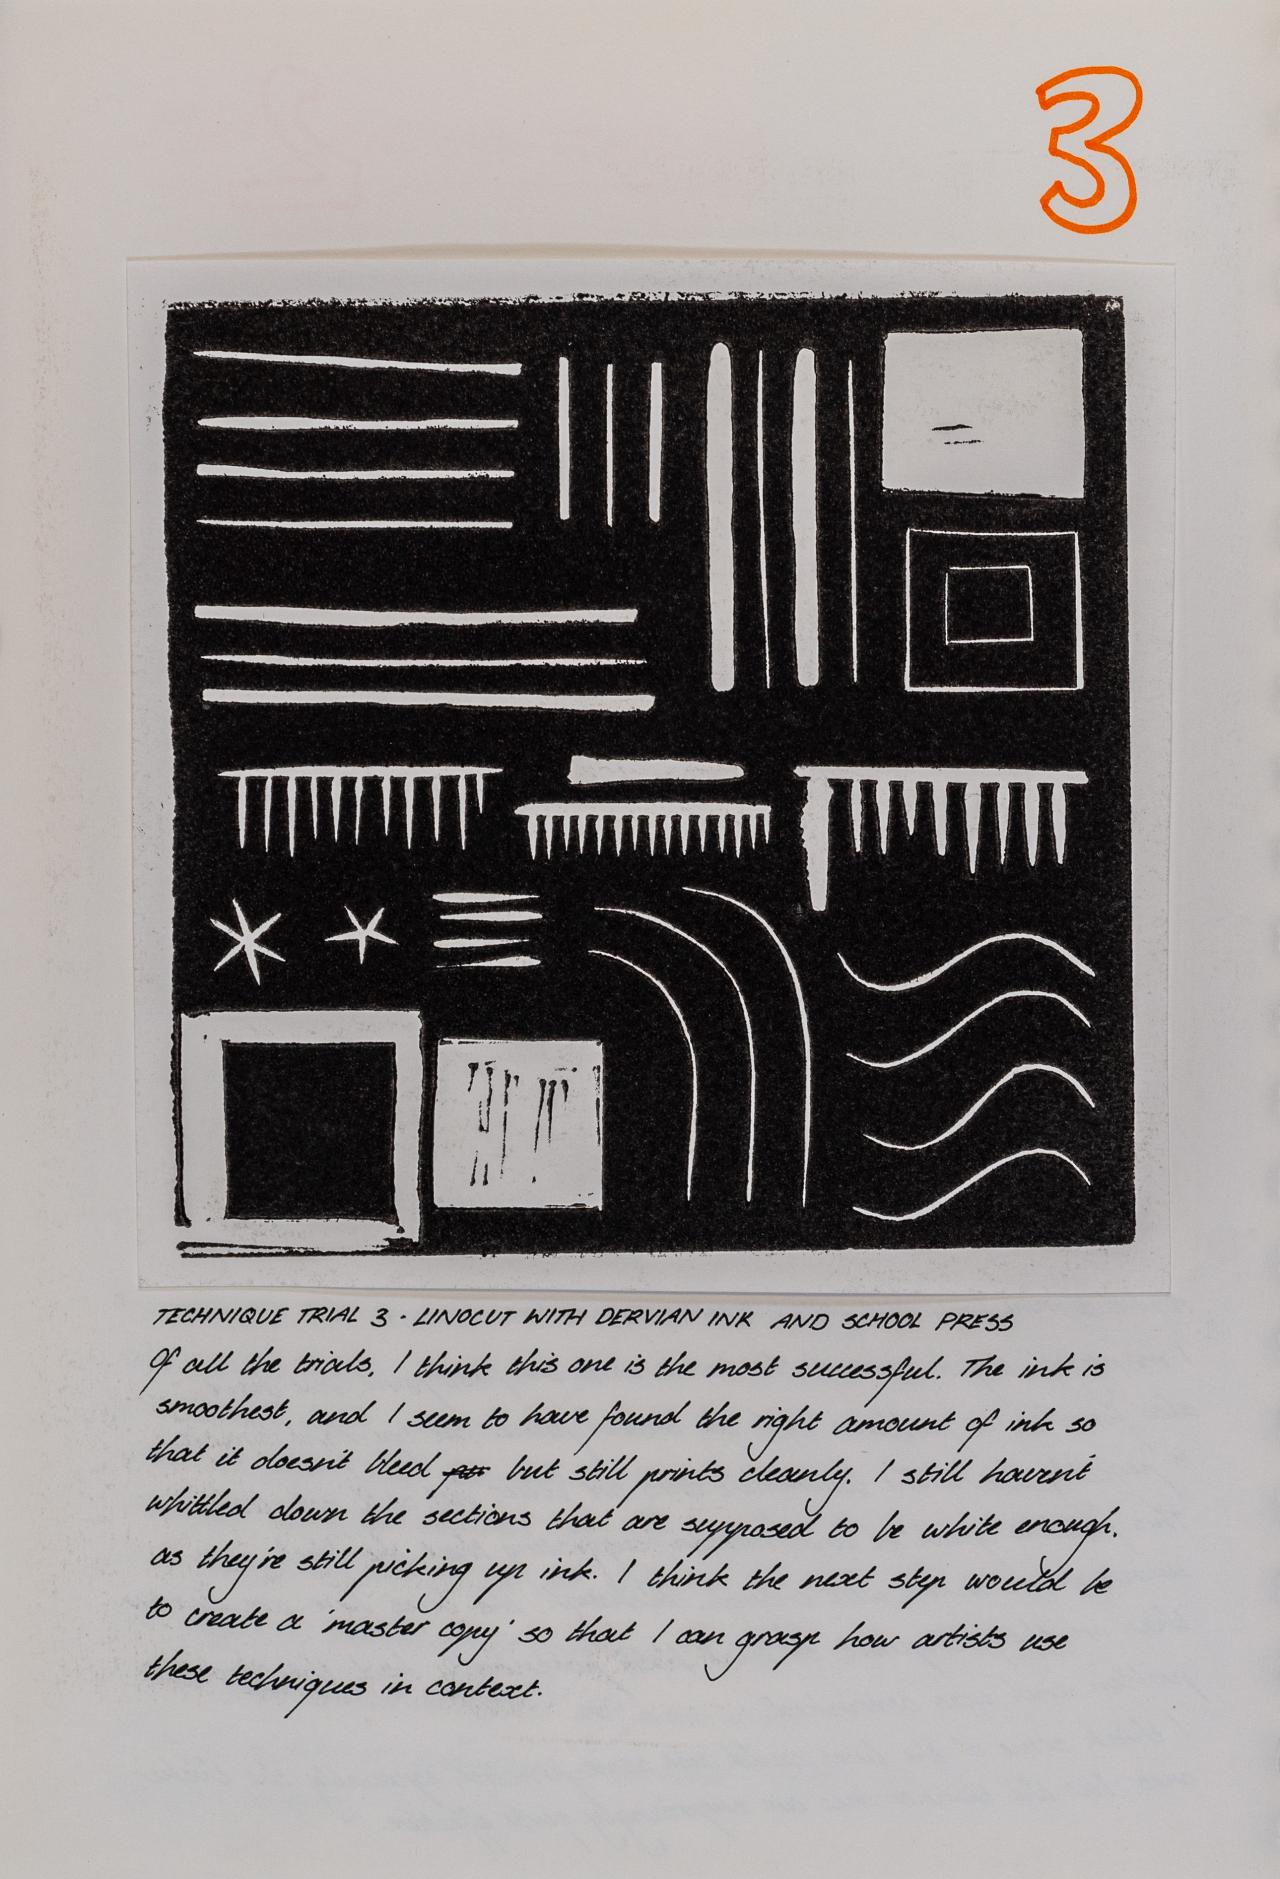 3
TECHNIQUE TRIAL 3 - LINOCUT WITH DERVIAN INK AND SCHOOL PRESS
Of all the trials, I think this one is the most successful. The ink is
smoothest, and I seem to have found the right amount of ink so
that it doesn't bleed but still prints cleanly. I still haven't
whittled down the sections that are supposed to be white enough,
as they're still picking up ink. I think the next step would be
to create a 'master copy' so that I can grasp how artists use
these techniques in context.